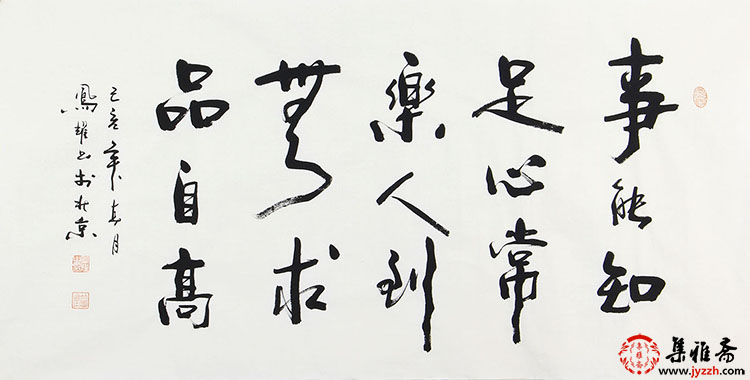 事能知
足心常
樂人到
無求
品自高
己亥年月
鳳耀书於北京
集雅斋
www.jyzzh.com